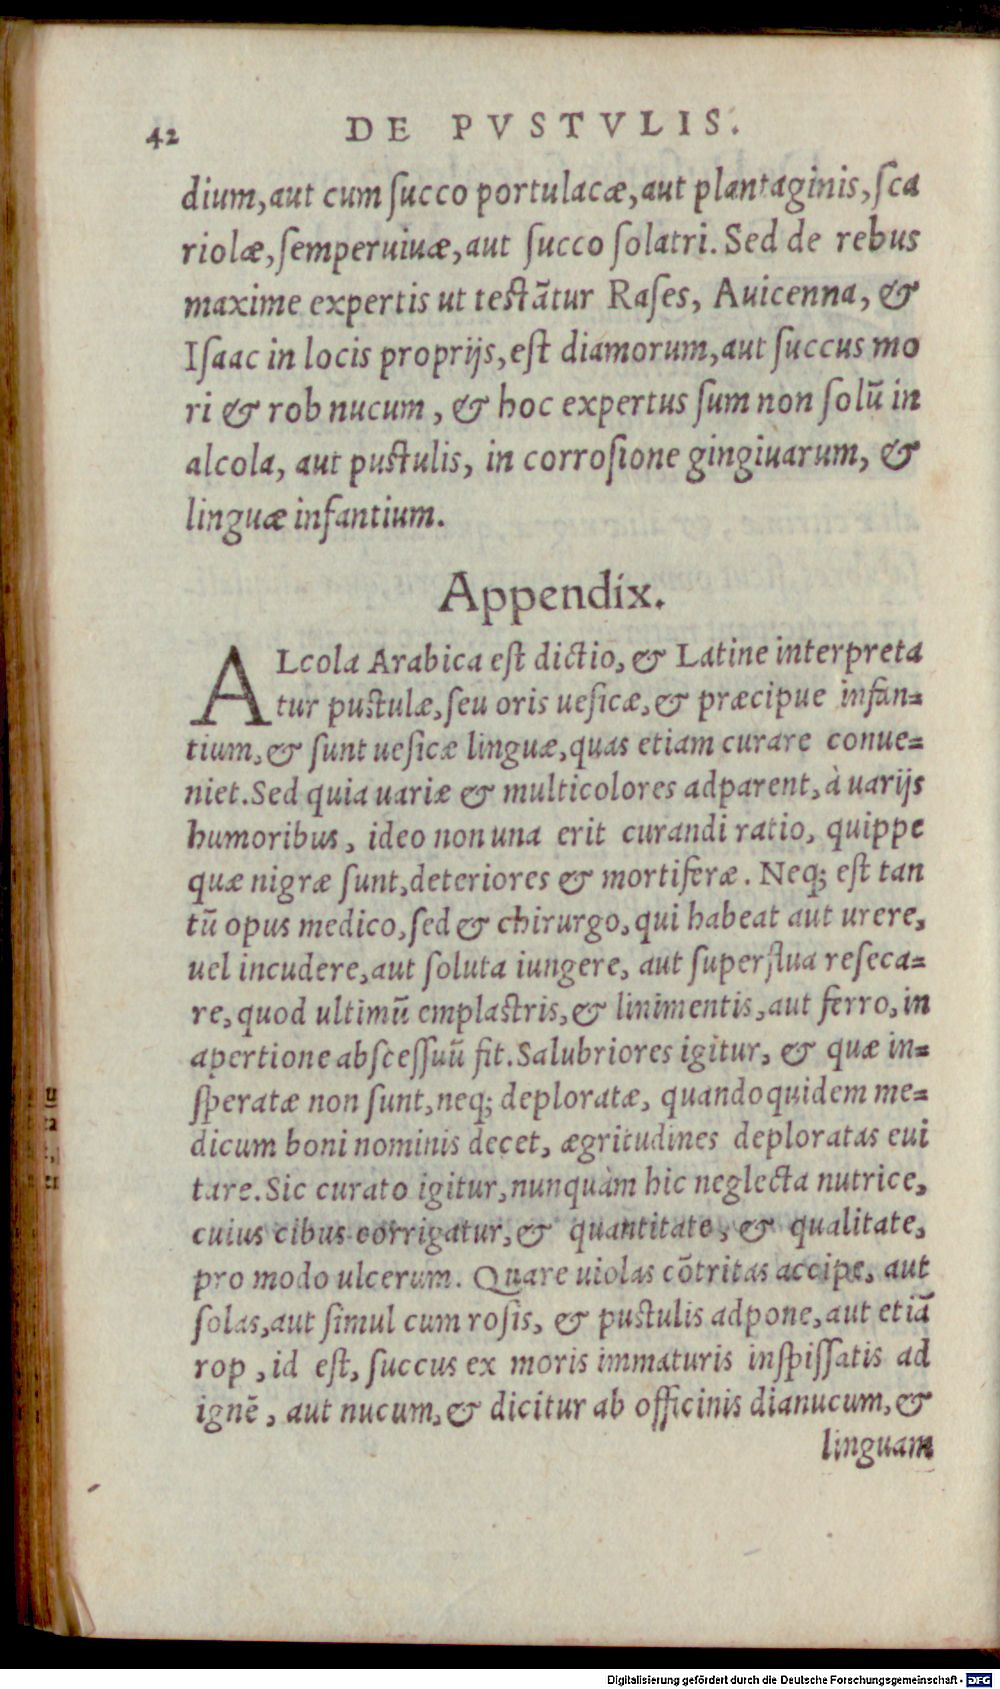 42 DE PVSTVLIS.
dium, aut cum ſucco portulacæ, aut plantaginis, ſca
riolæ, ſemperuiuæ, aut ſucco ſolatri. Sed de rebus
maxime expertis ut teſtãtur Raſes, Auicenna, &
Iſaac in locis proprijs, eſt diamorum, aut ſuccus mo
ri & rob nucum, & hoc expertus ſum non ſolũ in
alcola, aut puſtulis, in corroſione gingiuarum, &
linguæ infantium.
Appendix.
ALcola Arabica eſt dictio, & Latine interpreta
tur puſtulæ, ſeu oris ueſicæ, & præcipue infan=
tium, & ſunt ueſicæ linguæ, quas etiam curare conue=
niet. Sed quia uariæ & multicolores adparent, à uarijs
humoribus, ideo non una erit curandi ratio, quippe
quæ nigræ ſunt, deteriores & mortiferæ. Neq; eſt tan
tũ opus medico, ſed & chirurgo, qui habeat aut urere,
uel incudere, aut ſoluta iungere, aut ſuperflua reſeca=
re, quod ultimũ emplaſtris, & linimentis, aut ferro, in
apertione abſceſſuũ fit. Salubriores igitur, & quæ in=
ſperatæ non ſunt, neq; deploratæ, quandoquidem me=
dicum boni nominis decet, ægritudines deploratas eui
tare. Sic curato igitur, nunquàm hic neglecta nutrice,
cuius cibus corrigatur, & quantitate, & qualitate,
pro modo ulcerum. Quare uiolas cõtritas accipe, aut
ſolas, aut ſimul cum roſis, & puſtulis adpone, aut etiã
rop, id eſt, ſuccus ex moris immaturis inſpiſſatis ad
ignẽ, aut nucum, & dicitur ab officinis dianucum, &
linguam
Digitalisierung gefördert durch die Deutsche Forschungsgemeinschaft - DFG